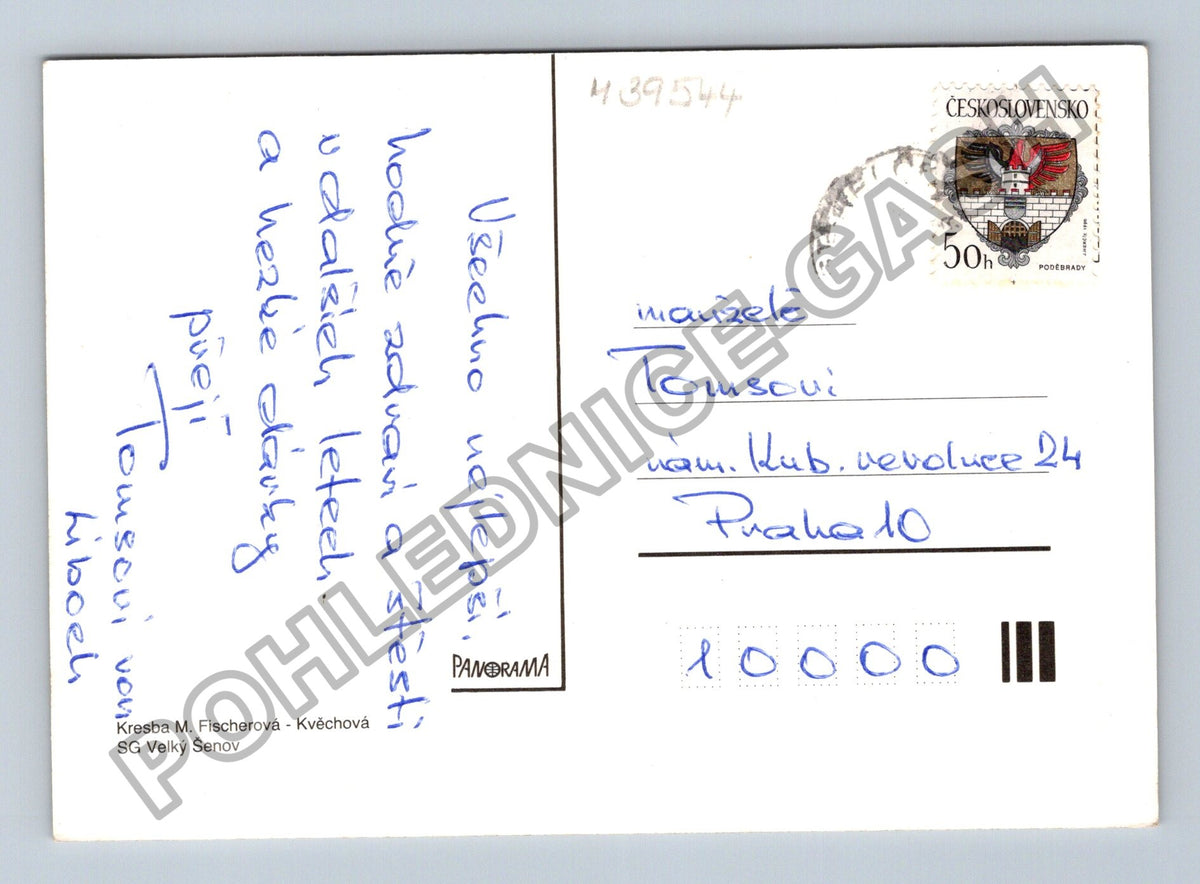 Všechno nejlepší,
hodně zdraví a štěstí
v dalších letech
a hezké dárky
přejí
Tomsovi von
Liboch
Kresba M. Fischerová - Kvěchová
SG Velký Šenov
PANORAMA
M39544
ČESKOSLOVENSKO
50h
PODĚBRADY
manželé
Tomsovi
nám. Kub. revoluce 24
Praha 10
10000
POHLEDNICE-GASH